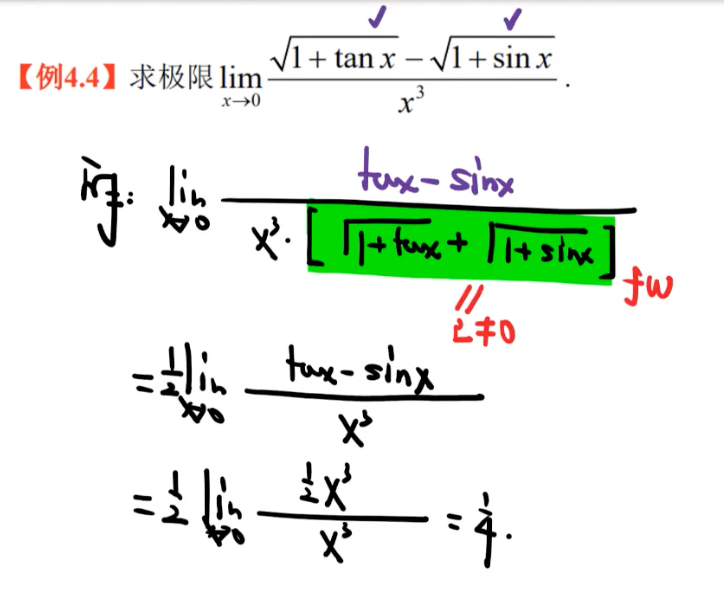 【例4.4】求极限 lim x→0 (√(1 + tan x) − √(1 + sin x)) / x³ .
lim x→0 (tanx − sinx) / (x³ · [√(1+tanx) + √(1+sinx)])
f(x)
2≠0
= 1/2 lim x→0 (tanx − sinx) / x³
= 1/2 lim x→0 (1/2 x³) / x³ = 1/4.